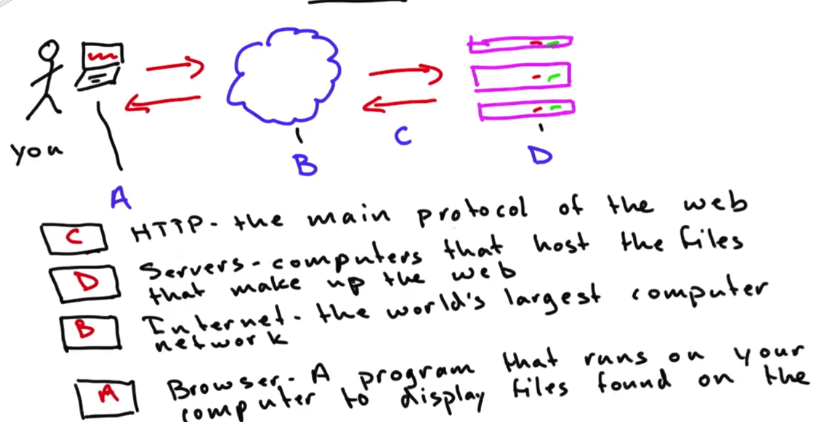 you
A
B
C
D
C HTTP- the main protocol of the web
D Servers- computers that host the files
that make up the web
B Internet- the world's largest computer
network
A Browser- A program that runs on your
computer to display files found on the